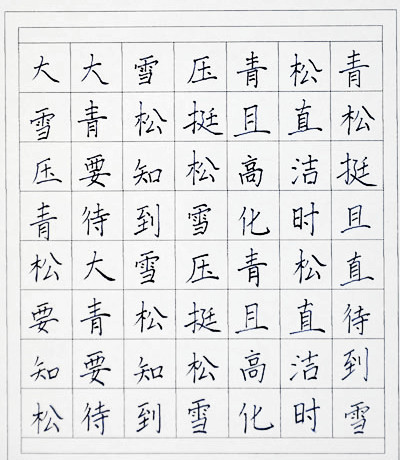 大大雪压青松青
雪青松挺且直松
压要知松高洁挺
青待到雪化时且
松大雪压青松直
要青松挺且直待
知要知松高洁到
松待到雪化时雪